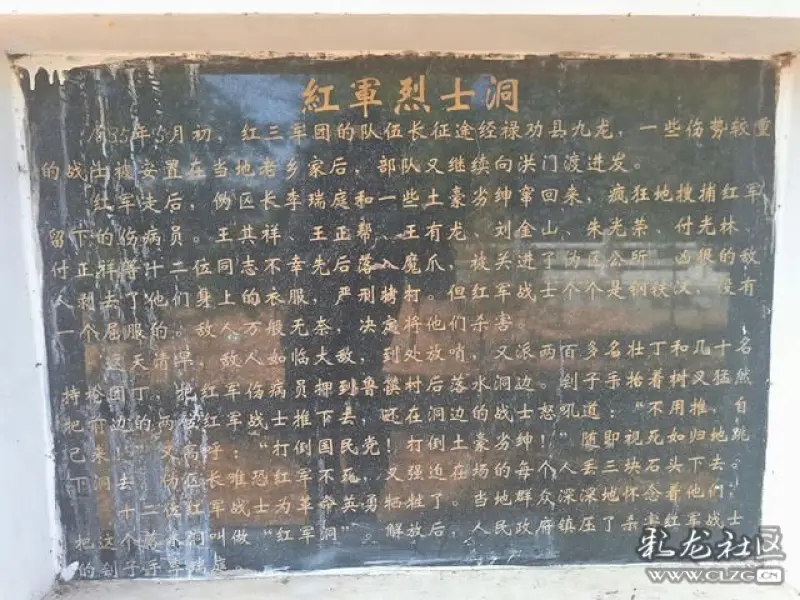 紅軍烈士洞
1935年5月初，红三军团的队伍长征途经禄劝县九龙，一些伤势较重
的战士被安置在当地老乡家后，部队又继续向洪门渡进发。
红军走后，伪区长李瑞庭和一些土豪劣绅窜回来，疯狂地搜捕红军
留下的伤病员。王其祥、王正帮、王有龙、刘金山、朱光荣、付光林、
付正祥等十二位同志不幸先后落入魔爪，被关进了伪区公所。凶狠的敌
人剥去了他们身上的衣服，严刑拷打。但红军战士个个是钢铁汉，没有
一个屈服的。敌人万般无奈，决定将他们杀害。
这天清早，敌人如临大敌，到处放哨，又派两百多名壮丁和几十名
持枪团丁，把红军伤病员押到鲁 村后落水洞边。刽子手抢着树叉猛然
把前边的两位红军战士推下去，还在洞边的战士怒吼道：“不用推，自
己来！”又高呼：“打倒国民党！打倒土豪劣绅！”随即视死如归地跳
下洞去。伪区长难恐红军不死，又强迫在场的每个人丢三块石头下去。
十二位红军战士为革命英勇牺牲了。当地群众深深地怀念着他们，
把这个落水洞叫做“红军洞”。解放后，人民政府镇压了杀害红军战士
的刽子手李瑞庭。
彩龙社区
www.CLZG.CN